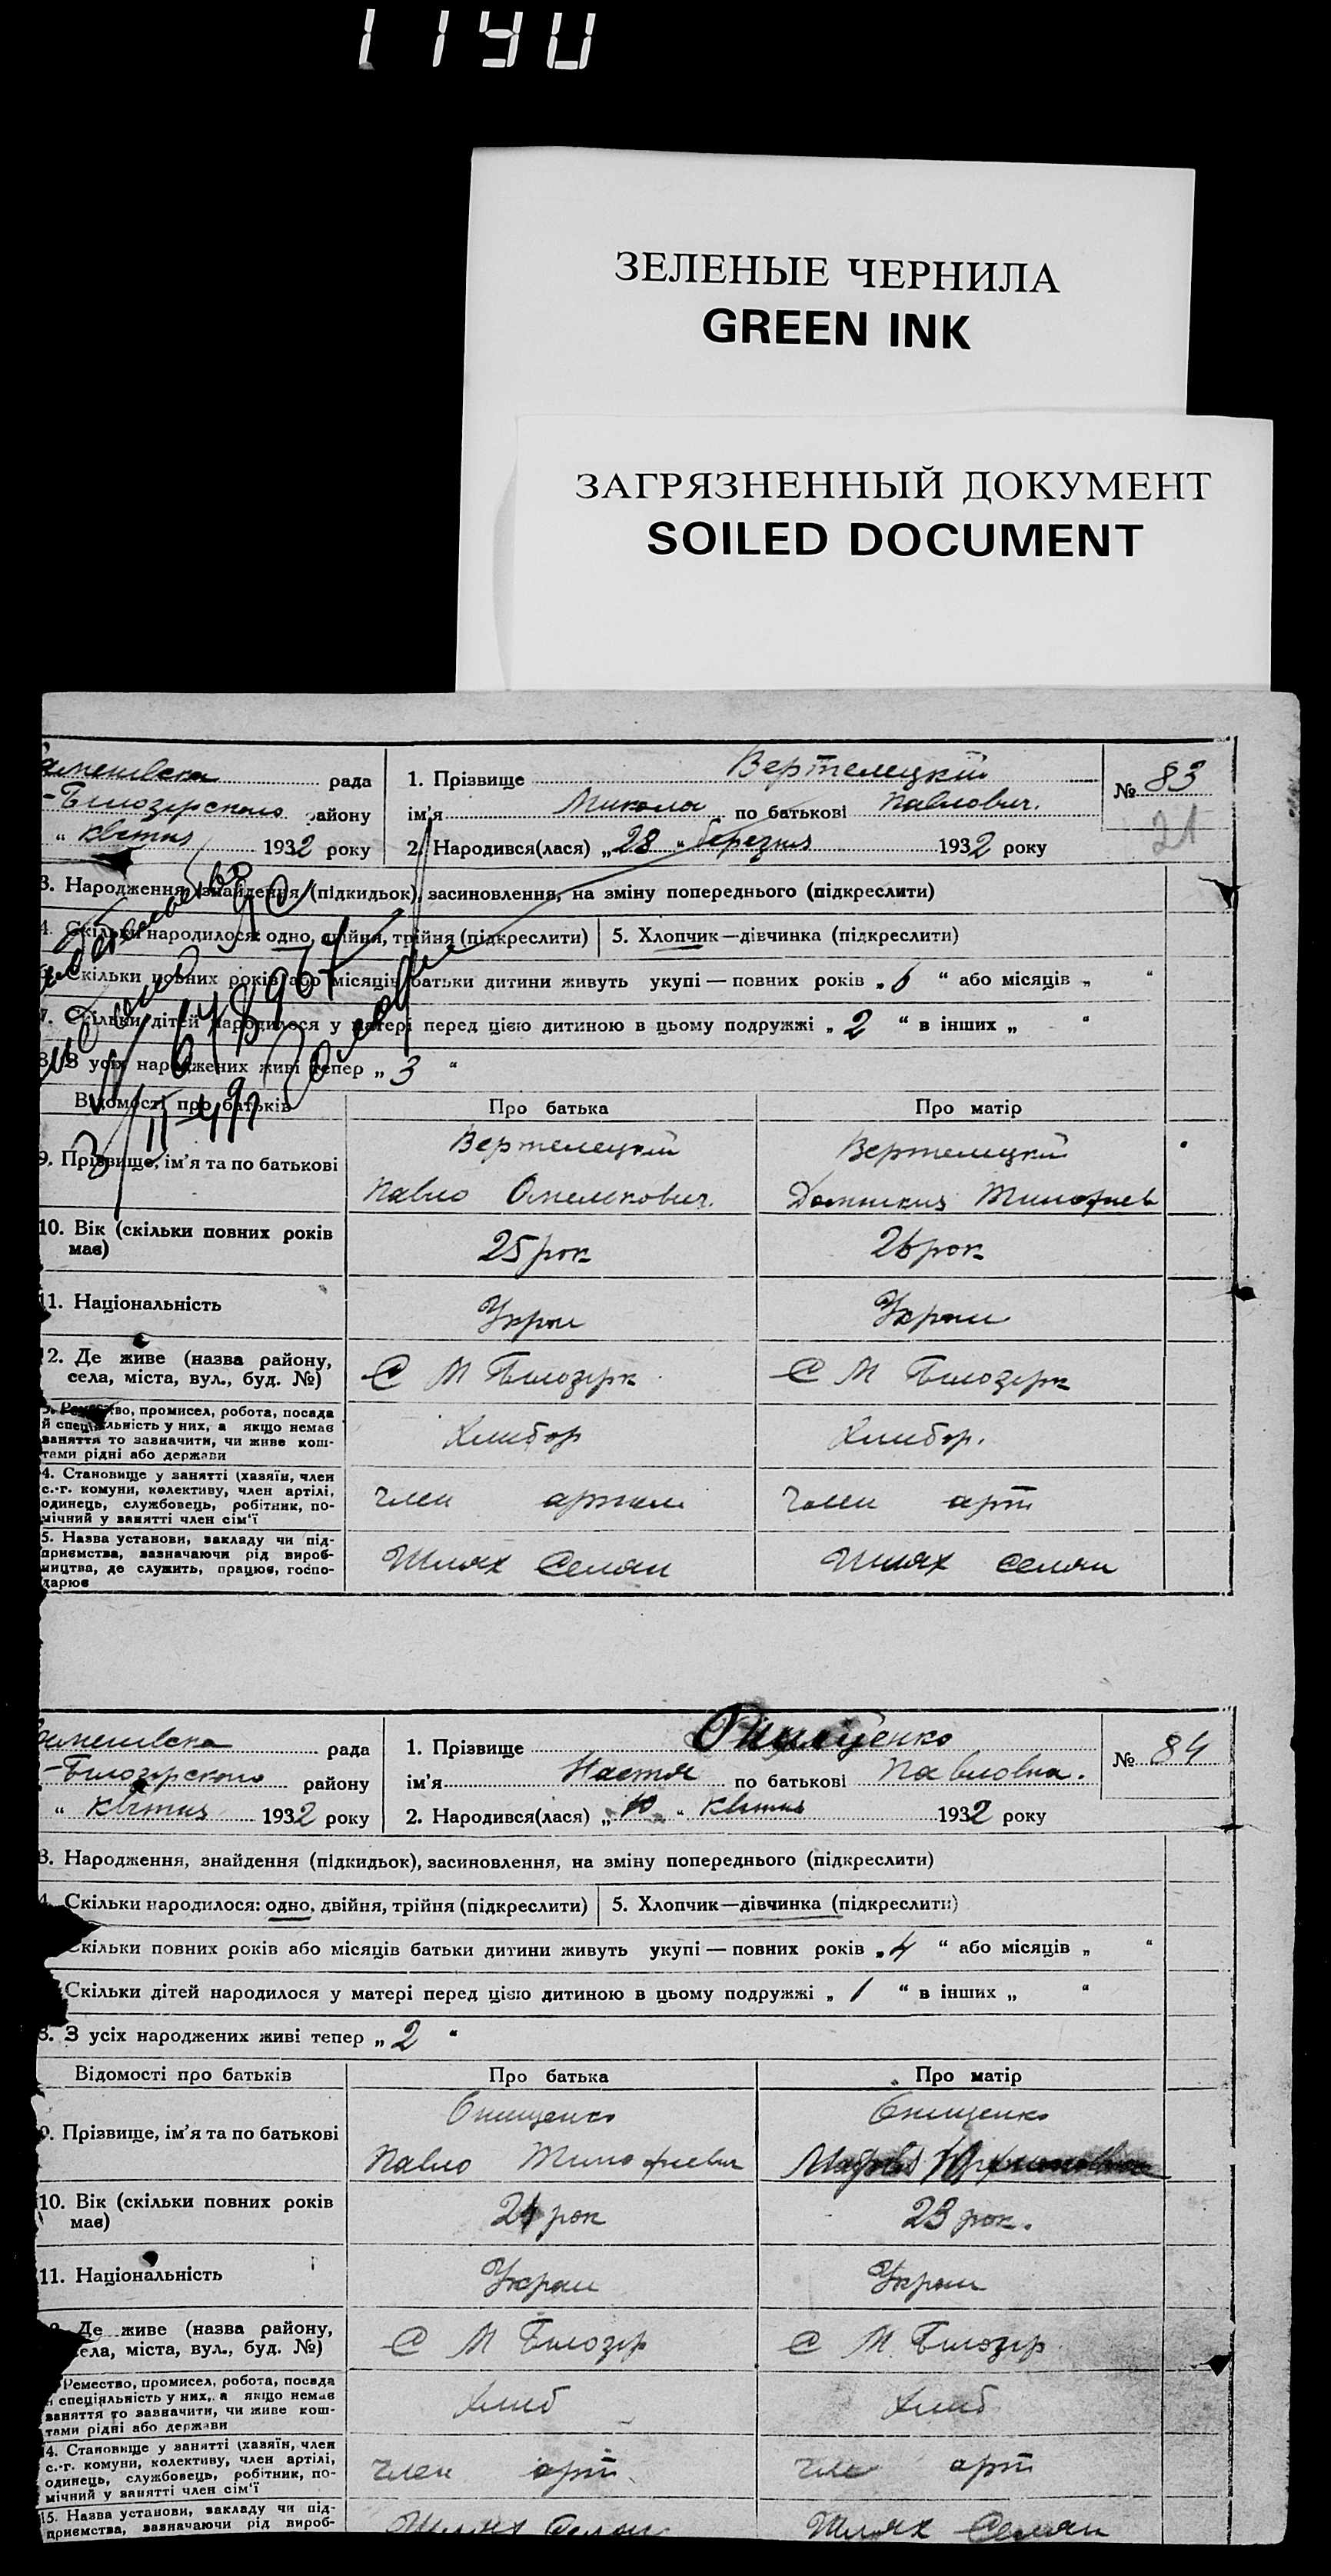 1190
ЗЕЛЕНЫЕ ЧЕРНИЛА
GREEN INK
ЗАГРЯЗНЕННЫЙ ДОКУМЕНТ
SOILED DOCUMENT
рада
-Білозірського району
" квітня 1932 року
1. Прізвище Вертелецкій
ім'я Микола по батькові Павлович.
2. Народився(лася) „28" березня 1932 року
№ 83
21
3. Народження, знайдення (підкидьок), засиновлення, на зміну попереднього (підкреслити)
4. Скільки народилося: одно, двійня, трійня (підкреслити) 5. Хлопчик—дівчинка (підкреслити)
6. Скільки повних років або місяців батьки дитини живуть укупі — повних років „6 " або місяців „ "
7. Скільки дітей народилося у матері перед цією дитиною в цьому подружжі „ 2 " в інших „ "
8. З усіх народжених живі тепер „ 3 "
Відомості про батьків Про батька Про матір
9. Прізвище, ім'я та по батькові
Вертелецкій Вертелецкій
Павло Омелькович.
10. Вік (скільки повних років має)
25 рок 26 рок
11. Національність
Украи Украи
12. Де живе (назва району,
села, міста, вул., буд. №)
С М Білозірк С М Білозірк
во, промисел, робота, посада
й спеціяльність у них, а якщо немає
заняття то зазначити, чи живе кош-
тами рідні або держави
Хлибор Хлибор.
4. Становище у занятті (хазяїн, член
с.-г. комуни, колективу, член артілі,
одинець, службовець, робітник, по-
мічний у занятті член сім'ї
член артели член арт
5. Назва установи, закладу чи під-
приємства, зазначаючи рід вироб-
ництва, де служить, працює, госпо-
дарює
Шлях Селян Шлях Селян
рада
-Білозірского району
" квітня 1932 року
1. Прізвище Онищенко
ім'я Настя по батькові Павловна.
2. Народився(лася) „10" квітня 1932 року
№ 84
3. Народження, знайдення (підкидьок), засиновлення, на зміну попереднього (підкреслити)
4. Скільки народилося: одно, двійня, трійня (підкреслити) 5. Хлопчик—дівчинка (підкреслити)
Скільки повних років або місяців батьки дитини живуть укупі — повних років „4 " або місяців „ "
Скільки дітей народилося у матері перед цією дитиною в цьому подружжі „ 1 " в інших „ "
8. З усіх народжених живі тепер „ 2 "
Відомості про батьків Про батька Про матір
9. Прізвище, ім'я та по батькові
Онищенко Онищенко
Павло Тимофиевич
10. Вік (скільки повних років має)
рок 23 рок.
11. Національність
Украи Украи
Де живе (назва району,
села, міста, вул., буд. №)
С М Білозір С М. Білозір
Ремество, промисел, робота, посада
спеціяльність у них, а якщо немає
заняття то зазначити, чи живе кош-
тами рідні або держави
Хлиб Хлиб
14. Становище у занятті (хазяїн, член
с.-г. комуни, колективу, член артілі,
одинець, службовець, робітник, по-
мічний у занятті член сім'ї
член арт чле арт
15. Назва установи, закладу чи під-
приємства, зазначаючи рід вироб-
Шлях Селян Шлях Селян